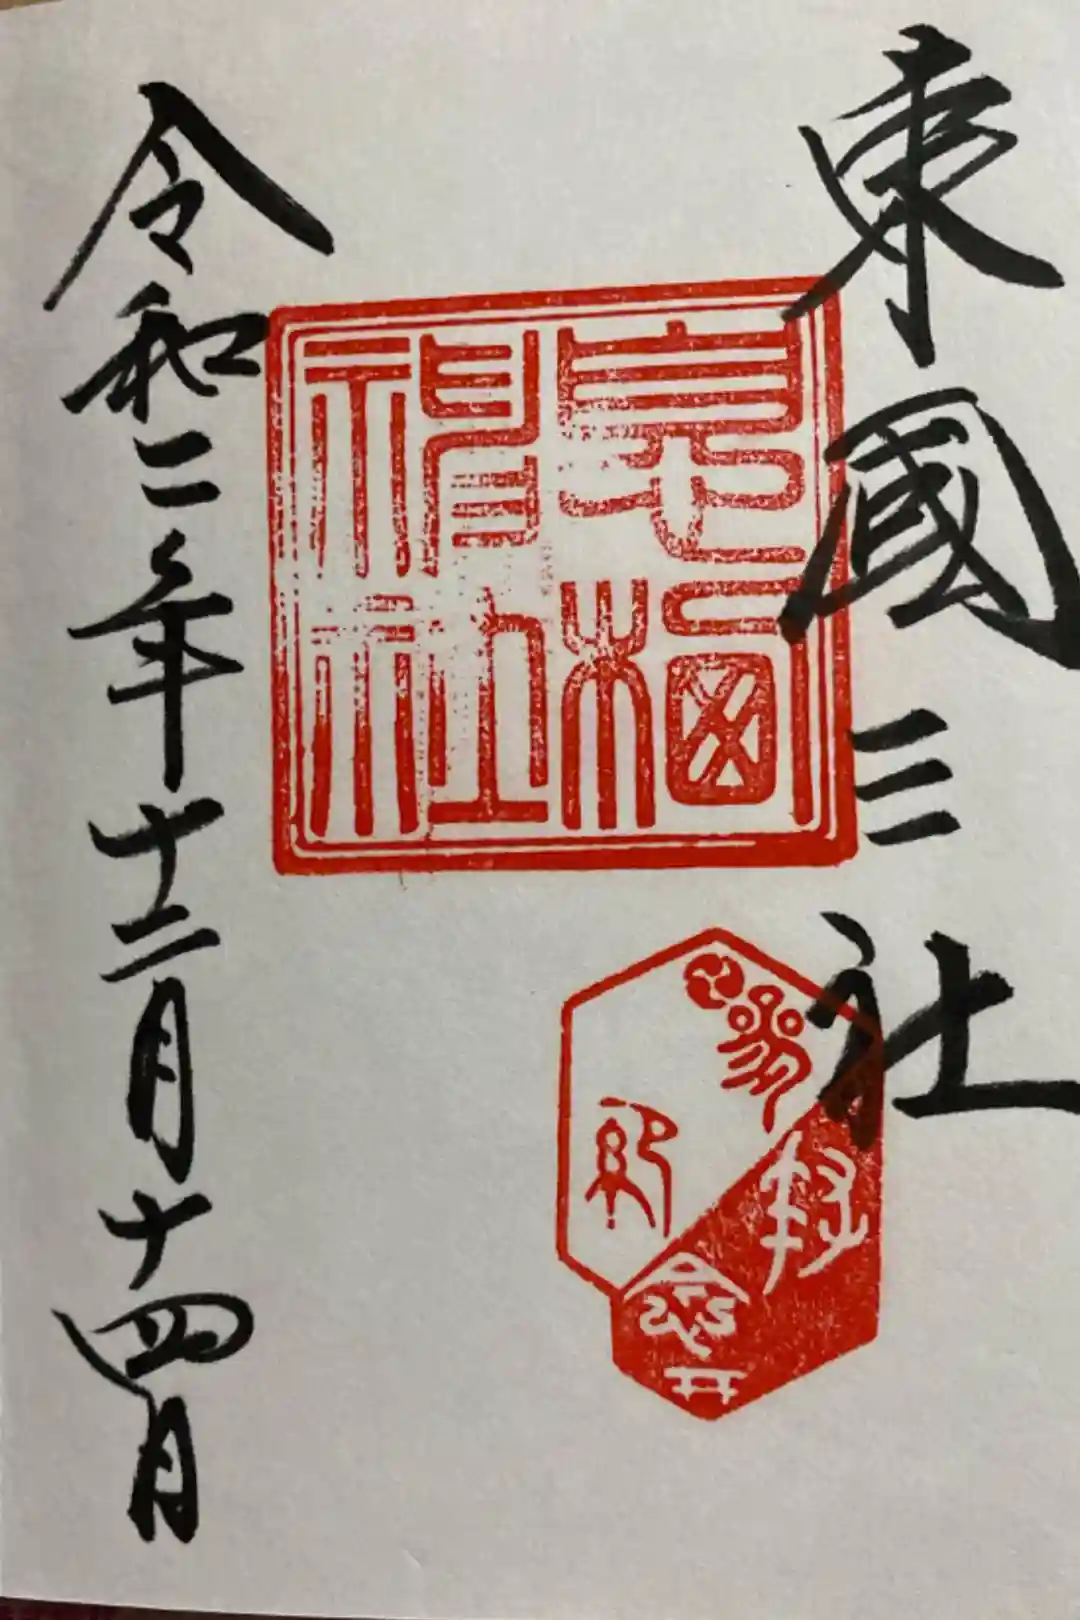 東國三社
息栖
神社
参拝
令和二年十二月十四日